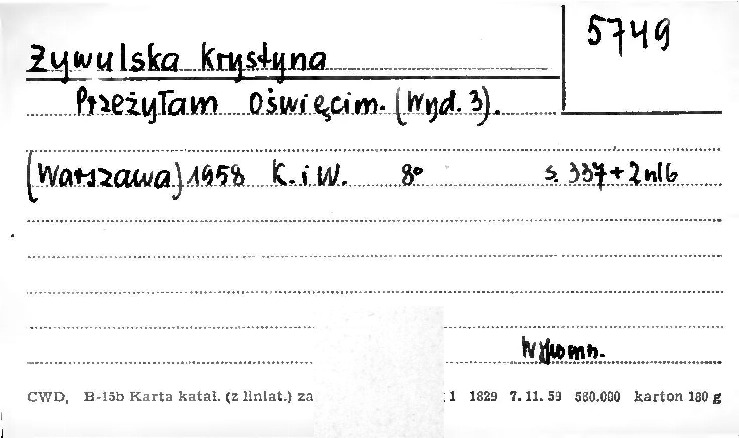 5749
Żywulska Krystyna
Przeżyłam Oświęcim. (Wyd. 3).
(Warszawa) 1958 K. i W. 8° s. 337+2nlb
CWD, B-15b Karta katal. (z liniat.) za 1 1829 7.11.59 560.000 karton 180 g